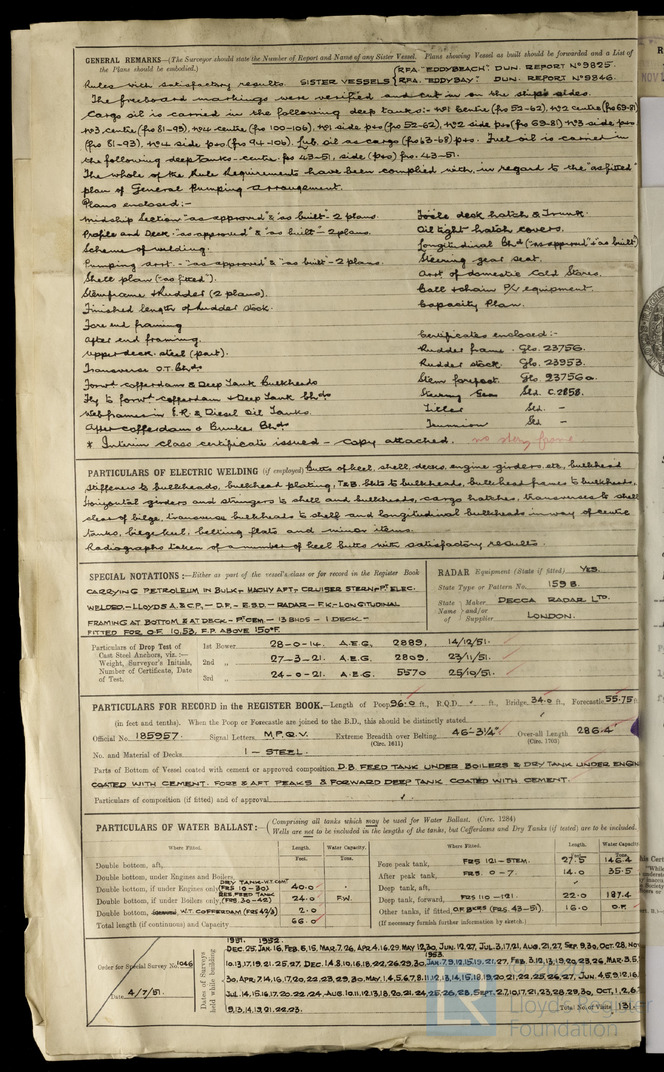 GENERAL REMARKS—(The Surveyor should state the Number of Report and Name of any Sister Vessel. Plans shewing Vessel as built should be forwarded and a List of
the Plans should be embodied.)
Rules with satisfactory results. SISTER VESSELS { RFA "EDDYBEACH" DUN. REPORT No 9825.
RFA "EDDYBAY" DUN. REPORT No 9846.
The freeboard markings were verified and cut in on the ship's sides.
Cargo oil is carried in the following deep tanks:- No1 Centre (frs 52-62), No2 centre (frs 69-81)
No3 centre (frs 81-93), No4 centre (frs 100-106), No1 side p&s (frs 52-62), No2 side p&s (frs 69-81) No3 side p&s
(frs 81-93), No4 side p&s (frs 94-106). Lub. oil as cargo (frs 63-68) p&s. Fuel oil is carried in
the following deep tanks - centre frs 43-51, side (p&s) frs. 43-51.
The whole of the Rule Requirements have been complied with, in regard to the "as fitted"
plan of General Pumping Arrangement.
Plans enclosed:-
Midship Section "as approved" & "as built" - 2 plans.
Profile and Deck "as approved" & "as built" - 2 plans.
Scheme of welding.
Pumping arrt. - "as approved" & "as built" - 2 plans.
Shell plan ("as fitted").
Sternframe & Rudder (2 plans).
Finished length of rudder stock.
Fore end framing
After end framing.
Upper deck steel (part).
Transverse O.T. Bhds
Forwd cofferdams & Deep Tank Bulkheads
Fly to forwd cofferdam & Deep Tank Bhds
Web frames in E.R. & Diesel Oil Tanks.
After cofferdam & Bunker Bhds
* Interim class certificate issued - copy attached.
Fo'c'sle deck hatch & Trunk.
Oil tight hatch covers.
Longitudinal Bhd ("as approved" & "as built")
Steering gear seat.
Arrt. of domestic Cold Stores.
Capacity Plan.
Certificates enclosed:-
Rudder frame. Gls. 23756.
Rudder stock Gls. 23953.
Stem forefoot. Gls 23756a.
Steering Gear Sld. C.2858.
Tiller Sld. -
Trunnion Sld -
PARTICULARS OF ELECTRIC WELDING (if employed) Butts of keel, shell, decks, engine girders, etc, bulkhead
stiffeners to bulkheads, bulkhead plating, T&B. bkts to bulkheads, bulkhead frames to bulkheads,
horizontal girders and stringers to shell and bulkheads, cargo hatches, transverses to shell
clear of bilge, transverse bulkheads to shell and longitudinal bulkheads in way of centre
tanks, bilge keel, belting flats and minor items.
Radiographs taken of a number of keel butts with satisfactory results.
SPECIAL NOTATIONS:—Either as part of the vessel's class or for record in the Register Book
CARRYING PETROLEUM IN BULK - MACHY AFT - CRUISER STERN - PT ELEC.
WELDED. - LLOYDS A. & C.P. - D.F. - E.S.D. - RADAR - F.K. - LONGITUDINAL
FRAMING AT BOTTOM & AT DECK - PT CEM - 13 BHDS - 1 DECK -
FITTED FOR O.F. 10,53, F.P. ABOVE 150°F.
RADAR Equipment (State if fitted) YES.
State Type or Pattern No. 159 B.
State Maker DECCA RADAR LTD.
Name and/or
of Supplier LONDON.
Particulars of Drop Test of
Cast Steel Anchors, viz.:—
Weight, Surveyor's Initials,
Number of Certificate, Date
of Test.
1st Bower 28-0-14. A.E.G. 2889, 14/12/51.
2nd „ 27-3-21. A.E.G. 2809. 23/11/51.
3rd „ 24-0-21. A.E.G. 5570 25/10/51.
PARTICULARS FOR RECORD in the REGISTER BOOK.—Length of Poop 96.0 ft., R.Q.D. - ft., Bridge 34.0 ft., Forecastle 55.75 ft.
(in feet and tenths). When the Poop or Forecastle are joined to the B.D., this should be distinctly stated
Official No. 185957. Signal Letters M.P.Q.V. Extreme Breadth over Belting 46'-3¼" Over-all Length 286.4'
(Circ. 1611) (Circ. 1703)
No. and Material of Decks 1 - STEEL.
Parts of Bottom of Vessel coated with cement or approved composition D.B. FEED TANK UNDER BOILERS & DRY TANK UNDER ENGIN
COATED WITH CEMENT. FORE & AFT PEAKS & FORWARD DEEP TANK COATED WITH CEMENT.
Particulars of composition (if fitted) and of approval
PARTICULARS OF WATER BALLAST:— (Comprising all tanks which may be used for Water Ballast. (Circ. 1284)
Wells are not to be included in the lengths of the tanks, but Cofferdams and Dry Tanks (if tested) are to be included.
Where Fitted. Length. Water Capacity. Where Fitted. Length. Water Capacity
Feet. Tons. Tons.
Double bottom, aft,
Double bottom, under Engines and Boilers,
DRY TANK-W.T. CONT
Double bottom, if under Engines only, (FRS 10-30) 40.0 -
RES. FEED TANK
Double bottom, if under Boilers only, (FRS 30-42) 24.0 F.W.
Double bottom, W.T. COFFERDAM (FRS 42/3) 2.0
Total length (if continuous) and Capacity 66.0
Fore peak tank, FRS 121 - STEM. 27.5 146.4
After peak tank, FRS. 0-7. 14.0 35.5
Deep tank, aft,
Deep tank, forward, FRS 110-121. 22.0 187.4
Other tanks, if fitted, O.F. BKRS (FRS. 43-51). 16.0 O.F.
(If necessary furnish further information by sketch.)
Order for Special Survey No. 1046
Date 4/7/51.
Dates of Surveys held while building
1951. 1952.
DEC. 25, JAN. 16, FEB. 6, 15, MAR. 7, 26, APR. 4, 16, 29 MAY 12, 30, JUN. 12, 27, JUL. 3, 17, 21, AUG. 21, 27, SEP. 9, 30, OCT. 28, NOV
1953.
10, 13, 7, 19, 21, 25, 27, DEC. 1, 4, 8, 9, 10, 16, 18, 22, 26, 29, 30, JAN. 7, 9, 12, 15, 19, 21, 27, FEB. 3, 12, 13, 19, 20, 23, 26, MAR. 3, 5
30, APR. 7, 14, 16, 17, 20, 22, 23, 29, 30, MAY. 1, 4, 5, 6, 7, 8, 11, 12, 13, 14, 15, 18, 19, 20, 21, 22, 25, 26, 27, JUN. 4, 5, 9, 12, 16
JUL. 14, 15, 16, 17, 20, 22, 24, AUG. 10, 11, 12, 13, 18, 20, 21, 24, 25, 26, 28, SEPT. 2, 7, 10, 17, 21, 23, 28, 29, 30, OCT. 1, 2, 6,
9, 13, 14, 19, 21, 22, 23.
Total No. of Visits 131
Lloyd's Register
Foundation